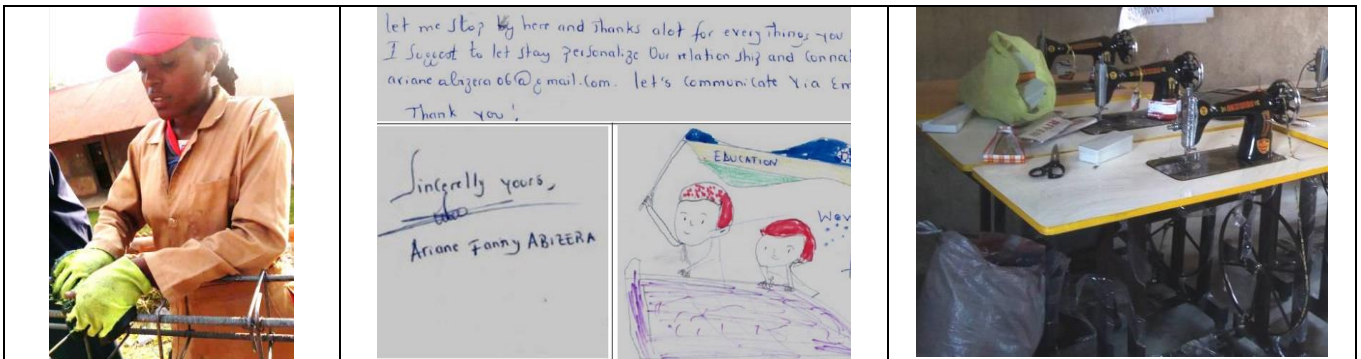 let me stop by here and Thanks alot for every things you
I Suggest to let stay personalize Our relationship and
arianeabizera06@gmail.com. let's communicate Via Em
Thank you!
Sincerelly yours,
Ariane Fanny ABIZERA
EDUCATION